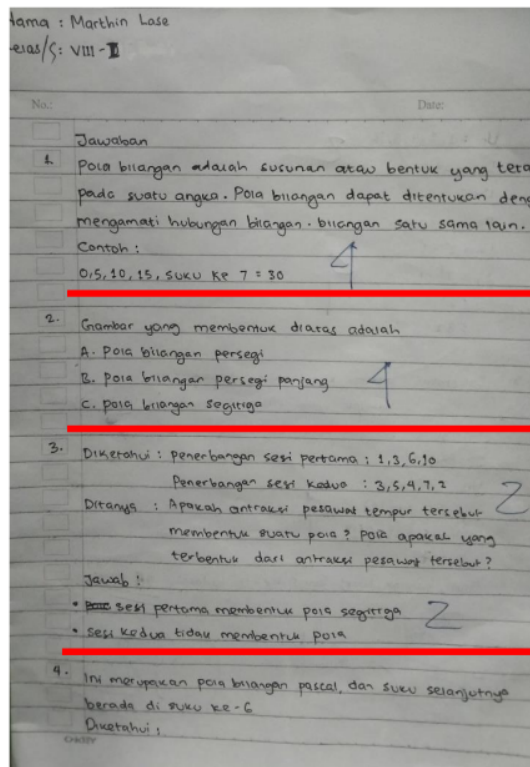 Nama : Marthin Lase
Kelas/S: VIII-I
No.:
Date:
Jawaban
1. Pola bilangan adalah susunan atau bentuk yang tera
pada suatu angka. Pola bilangan dapat ditentukan deng
mengamati hubungan bilangan-bilangan satu sama lain.
Contoh :
0,5,10,15, suku ke 7 = 30
4
2. Gambar yang membentuk diatas adalah
A. Pola bilangan persegi
B. Pola bilangan persegi panjang
4
C. Pola bilangan segitiga
3. Diketahui : Penerbangan sesi pertama : 1,3,6,10
Penerbangan sesi kedua : 3,5,4,7,2
2
Ditanya : Apakah antraksi pesawat tempur tersebut
membentuk suatu pola? Pola apakah yang
terbentuk dari antraksi pesawat tersebut?
Jawab :
• sesi pertama membentuk pola segitiga
2
• Sesi kedua tidak membentuk pola
4. Ini merupakan pola bilangan pascal, dan suku selanjutnya
berada di suku ke-6
Diketahui :